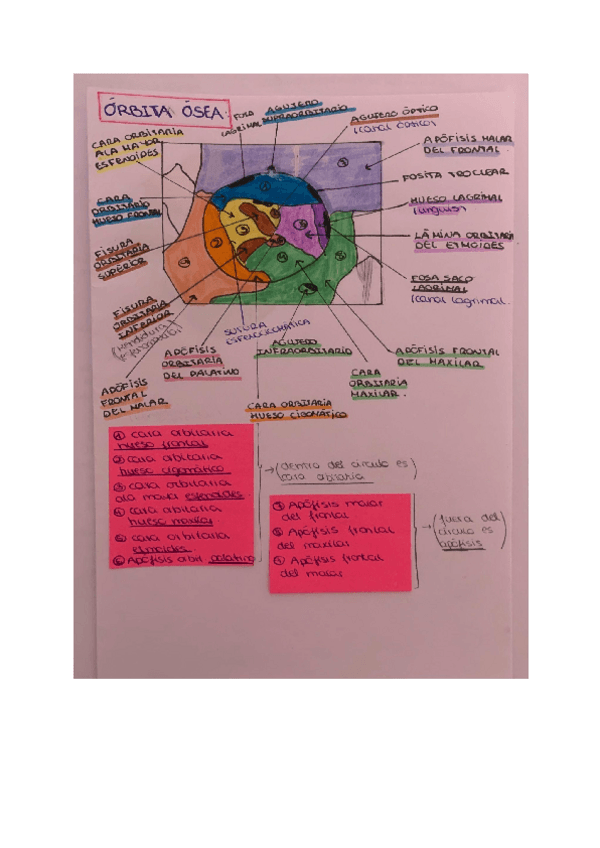 ÓRBITA ÓSEA.
FOSA
LAGRIMAL
AGUJERO
SUPRAORBITARIO
AGUJERO ÓPTICO
(canal óptico)
CARA ORBITARIA
ALA MAYOR
ESFENOIDES
APÓFISIS MALAR
DEL FRONTAL
FOSITA TROCLEAR
CARA
ORBITARIO
HUESO FRONTAL
HUESO LAGRIMAL
(unguis)
LÁMINA ORBITARIA
DEL ETMOIDES
FISURA
ORBITARIA
SUPERIOR
FOSA SACO
LAGRIMAL
(canal lagrimal.
FISURA
ORBITARIA
INFERIOR
SUTURA
APÓFISIS
ORBITARIA
DEL PALATINO
AGUJERO
INFRAORBITARIO
APÓFISIS FRONTAL
DEL MAXILAR
CARA
ORBITARIA
MAXILAR.
APÓFISIS
FRONTAL
DEL MALAR
CARA ORBITARIA
HUESO CIGOMÁTICO
① cara orbitaria
hueso frontal
② cara orbitaria
hueso cigomático
③ cara orbitaria
ala mayor esfenoides.
④ cara orbitaria
hueso maxilar
⑤ cara orbitaria
etmoides.
⑥ Apófisis orbit palatino
→ (dentro del círculo es
cara orbitaria)
⑦ Apófisis malar
del frontal
⑧ Apófisis frontal
del maxilar
⑨ Apófisis frontal
del malar
→ (fuera del
círculo es
apófisis)